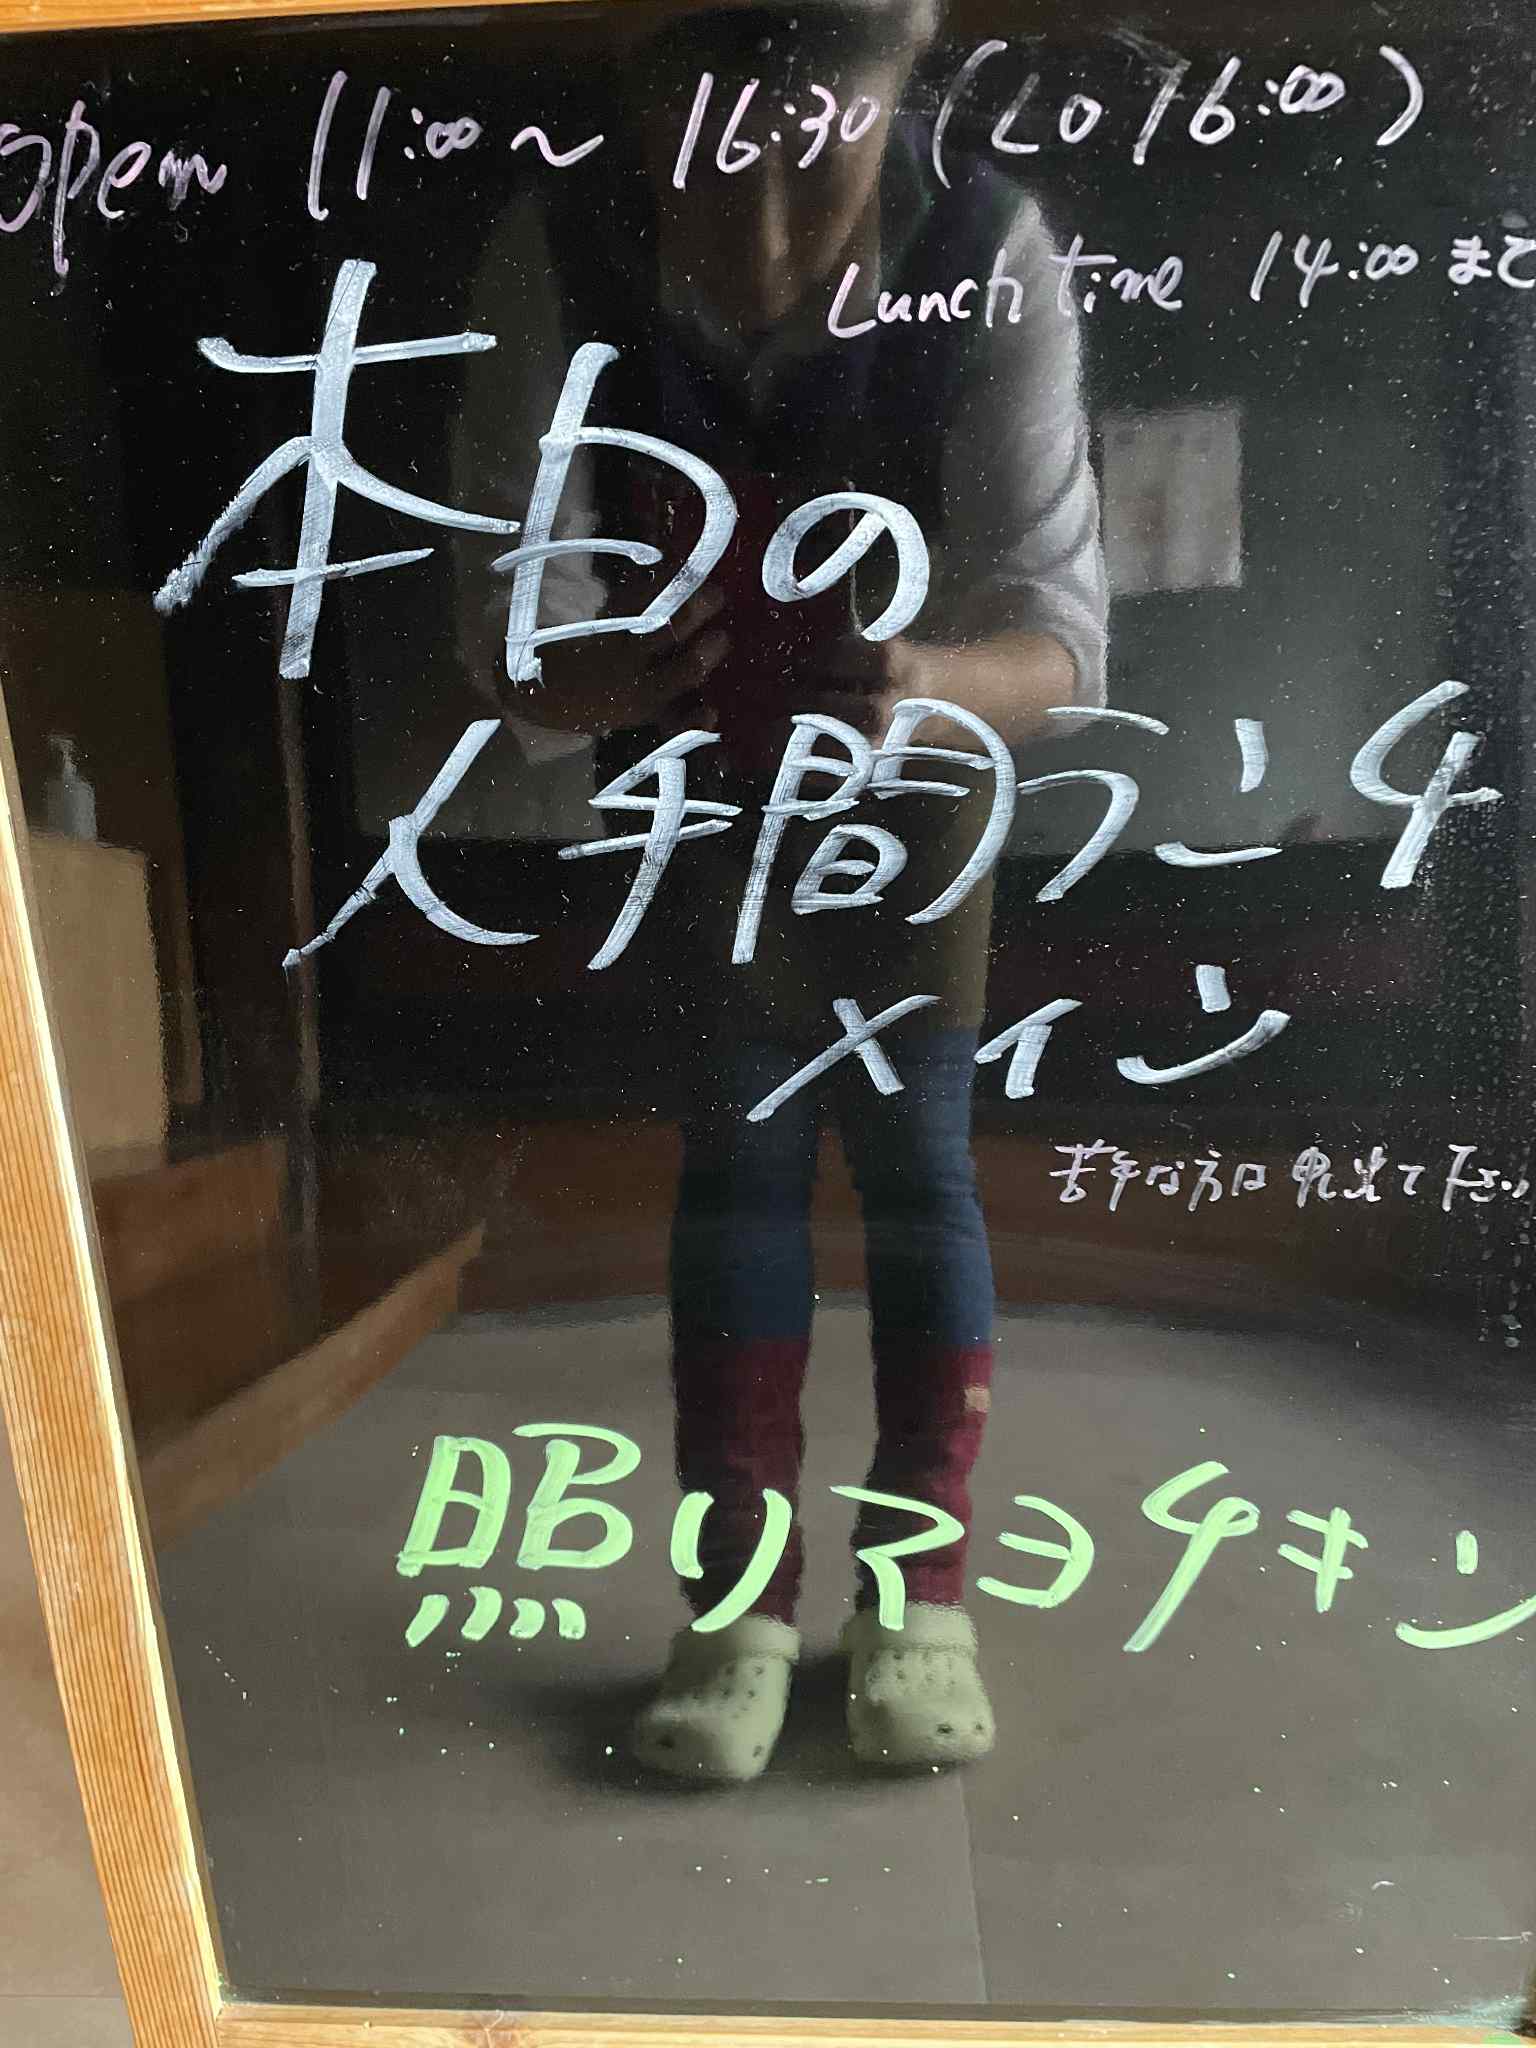 open 11:00～16:30 (LO 16:00)
Lunch time 14:00 まで
本日の
人手間ランチ
メイン
苦手な方は申出て下さい
照りマヨチキン